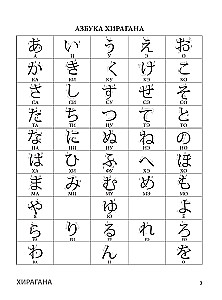 АЗБУКА ХИРАГАНА
あ い う え お
А И У Э О
か き く け こ
КА КИ КУ КЭ КО
さ し す せ そ
СА СИ СУ СЭ СО
た ち つ て と
ТА ТИ ЦУ ТЭ ТО
な に ぬ ね の
НА НИ НУ НЭ НО
は ひ ふ へ ほ
ХА ХИ ФУ ХЭ ХО
ま み む め も
МА МИ МУ МЭ МО
や ゆ よ
Я Ю Ё
ら り る れ ろ
わ ん を
ХИРАГАНА 3